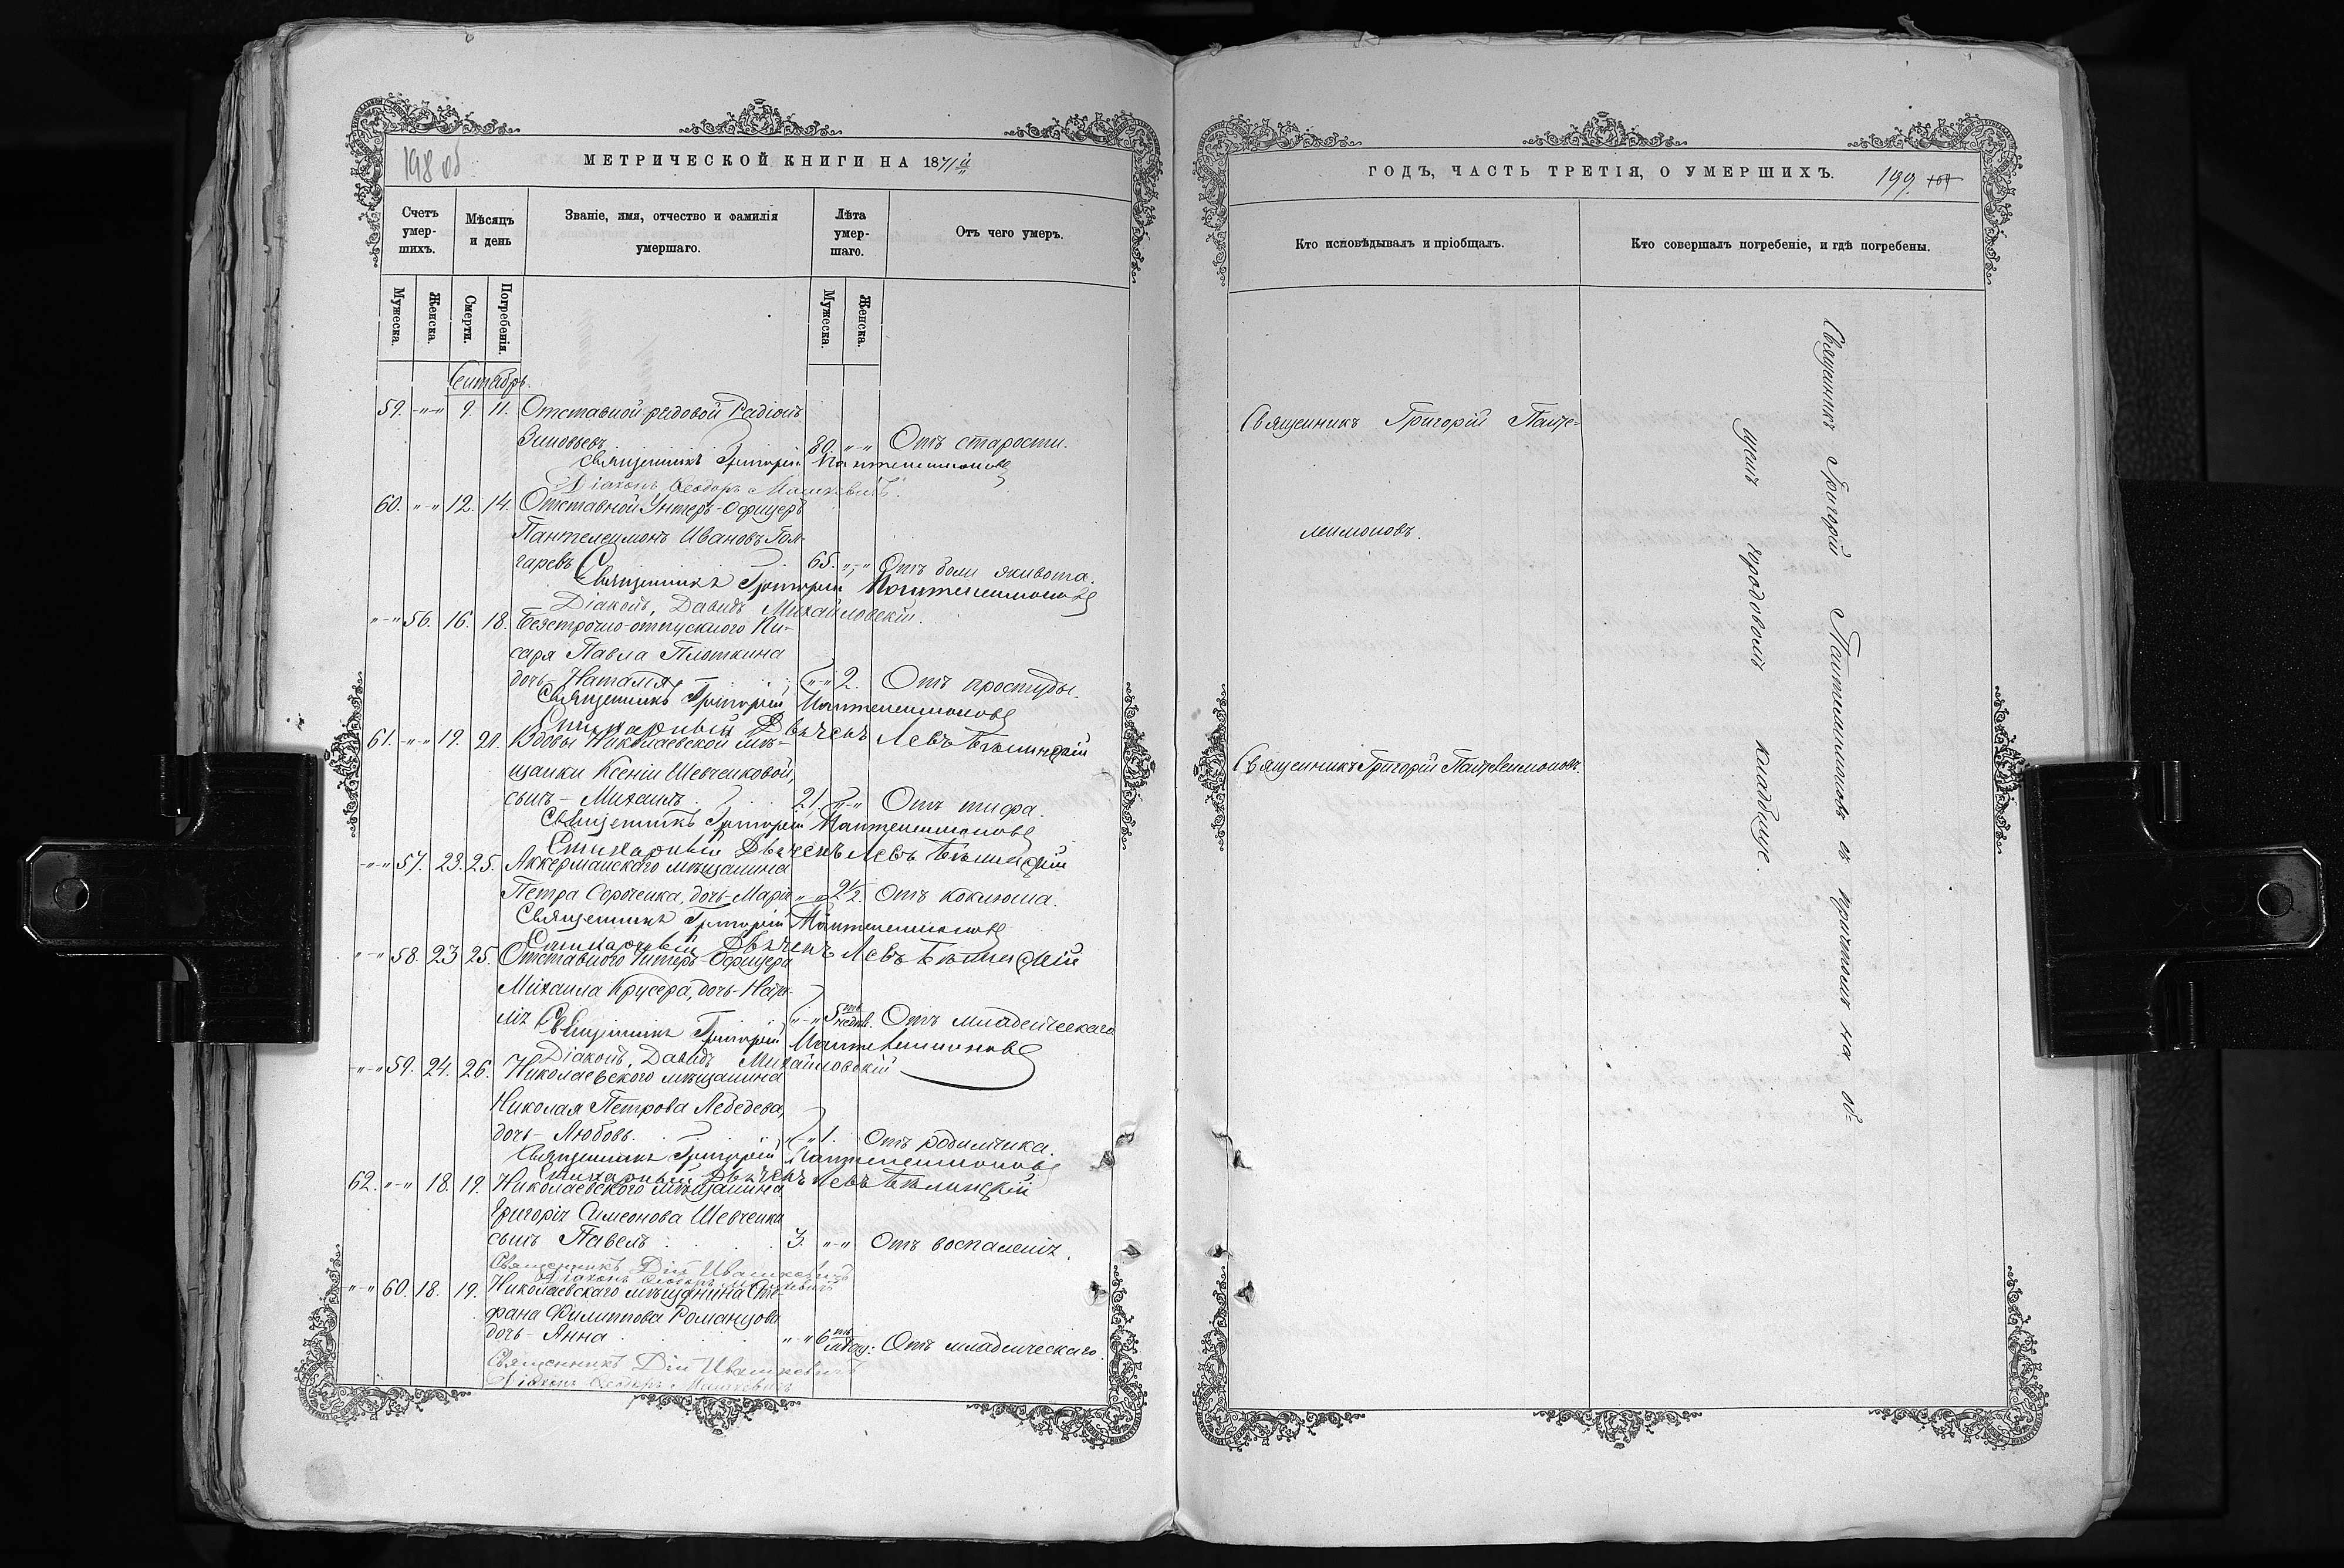 198 об
МЕТРИЧЕСКОЙ КНИГИ НА 1871й
Счетъ умер- шихъ.
Мѣсяцъ и день
Званіе, имя, отчество и фамилія умершаго.
Лѣта умер- шаго.
Отъ чего умеръ.
Мужеска. Женска. Смерти. Погребенія. Мужеска. Женска.
Сентябрь.
59. "-" 9. 11. Отставной рядовой Радіонъ
Зиновьевъ 80. "-" Отъ старости.
Священникъ Григорій Пантелеимоновъ
Діаконъ Ѳеодоръ Машкевичъ.
60. "-" 12. 14. Отставной Унтеръ-Офицеръ
Пантелеимонъ Ивановъ Гон-
чаревъ 65. "-" Отъ боли живота.
Священникъ Григорій Пантелеимоновъ
Діаконъ, Давидъ Михайловскій.
"-" 56. 16. 18. Безсрочно-отпускнаго Пи-
саря Павла Плоткина
дочь - Наталія "-" 2. Отъ простуды.
Священникъ Григорій Пантелеимоновъ
Стихарный Дьячекъ Левъ Бѣлинскій
61. "-" 19. 21. Вдовы Николаевской мѣ-
щанки Ксеніи Шевченковой,
сынъ - Михаилъ 21 "-" Отъ тифа.
Священникъ Григорій Пантелеимоновъ
Стихарный Дьячекъ Левъ Бѣлинскій
"-" 57. 23. 25. Аккерманскаго мѣщанина
Петра Сороченка, дочь - Марія "-" 2½. Отъ коклюша.
Священникъ Григорій Пантелеимоновъ
Стихарный Дьячекъ Левъ Бѣлинскій
"-" 58. 23 25. Отставнаго Унтеръ-Офицера
Михаила Крусера, дочь -
"-" 5ть недѣл. Отъ младенческаго
Священникъ Григорій Пантелеимоновъ
Діаконъ, Давидъ Михайловскій
"-" 59. 24. 26. Николаевскаго мѣщанина
Николая Петрова Лебедева,
дочь - Любовь. "-" 1. Отъ родимчика.
Священникъ Григорій Пантелеимоновъ
Стихарный Дьячекъ Левъ Бѣлинскій
62. "-" 18. 19. Николаевскаго мѣщанина
Григорія Симеонова Шевченки
сынъ Павелъ 3. "-" Отъ воспаленія.
Священникъ Дій Ивашкевичъ
Діаконъ Ѳеодоръ Машкевичъ
"-" 60. 18. 19. Николаевскаго мѣщанина Сте-
фана Филиппова Романцова
дочь - Анна "-" 6ть мѣсяц: Отъ младенческаго.
Священникъ Дій Ивашкевичъ
Діаконъ Ѳеодоръ Машкевичъ
ГОДЪ, ЧАСТЬ ТРЕТІЯ, О УМЕРШИХЪ.
199
Кто исповѣдывалъ и пріобщалъ.
Кто совершалъ погребеніе, и гдѣ погребены.
Священникъ Григорій Панте-
леимоновъ.
Священникъ Григорій Пантелеимоновъ.
Священникъ Григорій Пантелеимоновъ съ причтомъ на об-
щемъ городовомъ кладбище.